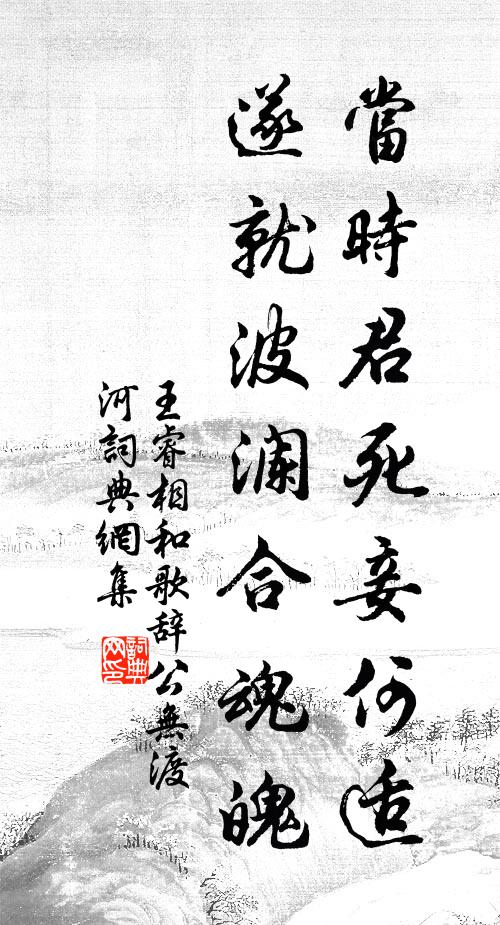 當時君死妾何适
遂就波瀾合魂魄
王睿相和歌辞公無渡
河詞典網集
詞典
网印